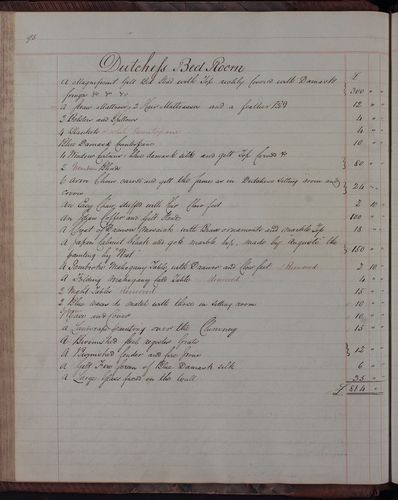 96
Dutchess Bed Room
£
A Magnificent Gilt Bed Stead with Top richly Covered with Damask
fringe &c &c &c 300 " "
A Straw Mattrass, 2 Hair Mattrasses and a feather Bed 12 " "
2 Bolsters and Pillows 4 " "
4 Blankets 4 " "
Blue Damask Counterpane 10 " "
4 Window Curtains blue damask silk and gilt Top Cornices &c
2 Venetian Blinds 80 " "
6 Arm Chairs carved and gilt the same as in Dutchess sitting room and
Covers 24 " "
An Easy Chair, stuffed with Hair Claw feet 2 10 "
An Japan Coffer and Gilt Stand 100 " "
A of with Brass ornaments and marble Top 18 " "
A Japan Cabinet black and gold marble top, made by the
painting by West 150 " "
A Pembroke Mahogany Table with Drawer and Claw feet Removed 2 10 "
A Folding Mahogany Table Removed 4 " "
2 Tables Removed 15 " "
2 Blue to match with those in sitting room 10 "
and Cover 10 "
A Landscape painting over the Chimney 15 " "
A Burnished register Grate
A Burnished fender and fire Irons 12 " "
A Gilt Fire Screen of Blue Damask silk 6 " "
A Large Glass fixed on the Wall 35 " "
£ 814 " "